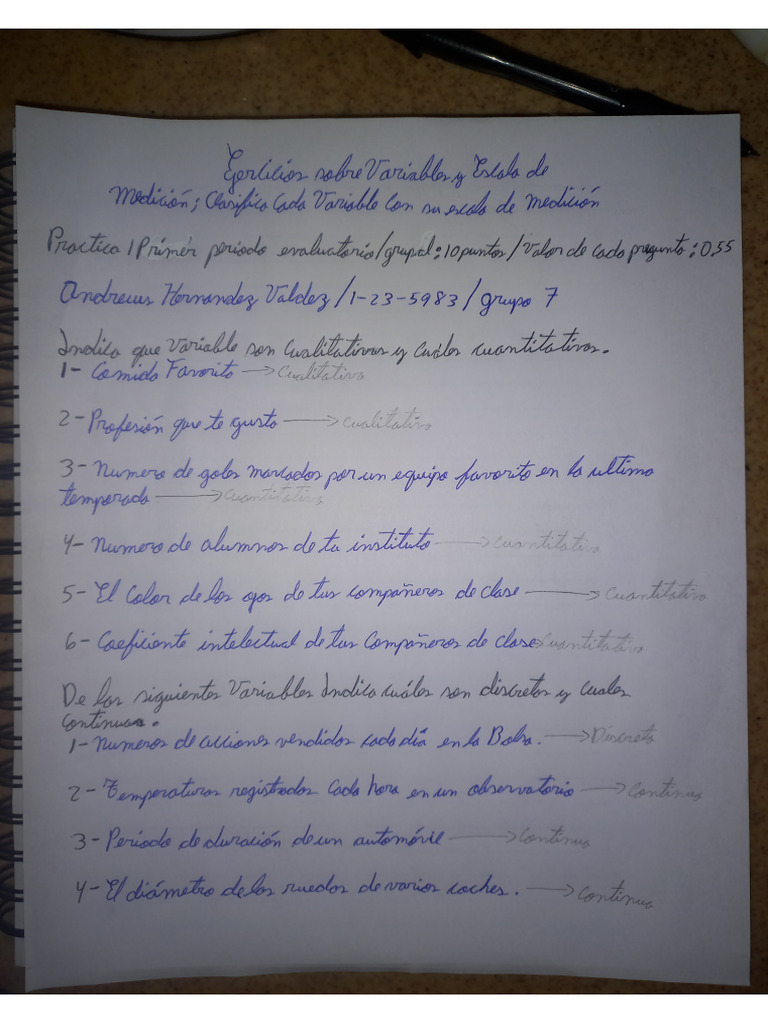 Ejercicios sobre Variables y Escala de
Medición; Clasifica Cada Variable con su escala de medición
Practica 1 Primer periodo evaluatorio/grupal: 10 puntos/Valor de cada pregunta: 0.55
Andrewus Hernandez Valdez/1-23-5983/grupo 7
Indica que variable son Cualitativas y cuáles cuantitativas.
1- Comida Favorita → Cualitativa
2- Profesión que te gusta → Cualitativa
3- Numero de goles marcados por un equipo favorito en la ultima
temporada → Cuantitativa
4- Numero de alumnos de tu instituto → Cuantitativa
5- El Color de los ojos de tus compañeros de clase → Cuantitativa
6- Coeficiente intelectual de tus Compañeros de clase → Cuantitativa
De las siguientes Variables Indica cuáles son discretas y cuales
continuas.
1- Numeros de acciones vendidas cada día en la Bolsa. → Discreta
2- Temperaturas registradas Cada hora en un observatorio → Continua
3- Periodo de duración de un automóvil → Continua
4- El diámetro de las ruedas de varios coches. → Continua